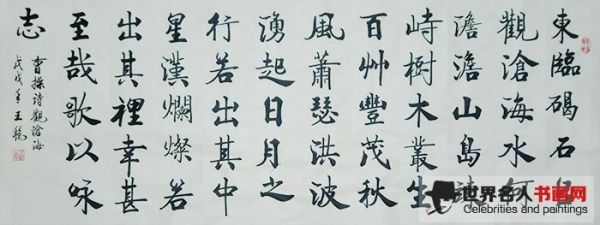 東臨碣石㠯
觀滄海水何
澹澹山島竦
峙樹木叢生
百艸豐茂秋
風蕭瑟洪波
湧起日月之
行若出其中
星漢爛燦若
出其裡幸甚
至哉歌以咏
志
曹操詩觀滄海
戊戌年王
世界名人书画网
Celebrities and paintings